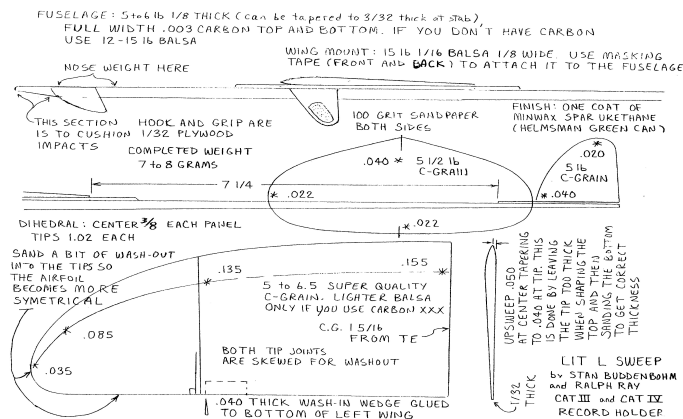 FUSELAGE: 5 to 6 lb 1/8 THICK (can be tapered to 3/32 thick at stab),
FULL WIDTH .003 CARBON TOP AND BOTTOM. IF YOU DON'T HAVE CARBON
USE 12-15 lb BALSA
WING MOUNT: 15 lb 1/16 BALSA 1/8 WIDE. USE MASKING
TAPE (FRONT AND BACK) TO ATTACH IT TO THE FUSELAGE
NOSE WEIGHT HERE
THIS SECTION
IS TO CUSHION
IMPACTS
HOOK AND GRIP ARE
1/32 PLYWOOD
COMPLETED WEIGHT
7 to 8 GRAMS
100 GRIT SANDPAPER
BOTH SIDES
FINISH: ONE COAT OF
MINWAX SPAR URETHANE
(HELMSMAN GREEN CAN)
.040 * 5 1/2 lb
C-GRAIN
* .020
5 lb
C-GRAIN
* .040
7 1/4
* .022
* .022
DIHEDRAL: CENTER 3/8 EACH PANEL
TIPS 1.02 EACH
SAND A BIT OF WASH-OUT
INTO THE TIPS SO
THE AIRFOIL
BECOMES MORE
SYMETRICAL
.135
.155
5 to 6.5 SUPER QUALITY
C-GRAIN. LIGHTER BALSA
ONLY IF YOU USE CARBON XXX
C.G. 1 5/16
FROM TE
.085
.035
BOTH TIP JOINTS
ARE SKEWED FOR WASHOUT
.040 THICK WASH-IN WEDGE GLUED
TO BOTTOM OF LEFT WING
1/32
THICK
UPSWEEP .050
AT CENTER TAPERING
TO .040 AT TIP. THIS
IS DONE BY LEAVING
THE TIP TOO THICK
WHEN SHAPING THE
TOP AND THEN
SANDING THE BOTTOM
TO GET CORRECT
THICKNESS
LIT L SWEEP
by STAN BUDDENBOHM
and RALPH RAY
CAT III and CAT IV
RECORD HOLDER